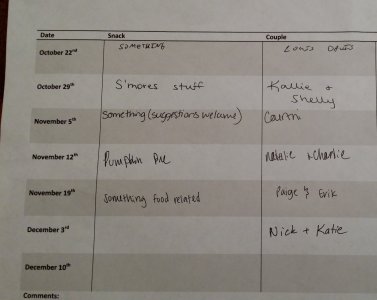 Date Snack Couple
October 22nd SOMETHING
October 29th S'mores stuff Kallie & Shelly
November 5th Something (suggestions welcome)
November 12th Pumpkin Pie Natalie + Charlie
November 19th Something food related Paige & Erik
December 3rd Nick + Katie
December 10th
Comments: